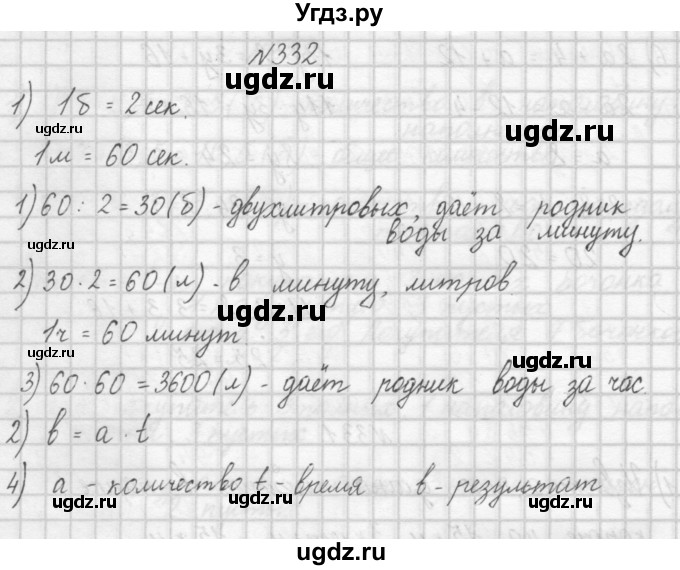 Угдз.ру
№332
ugdz.ru
ugdz.ru
1) 1б = 2 сек.
ugdz.ru
ugdz.ru
1м = 60 сек.
ugdz.ru
1) 60 : 2 = 30 (б) - двухлитровых, даёт родник
воды за минуту.
ugdz.ru
ugdz.ru
2) 30 · 2 = 60 (л) - в минуту, литров
ugdz.ru
1ч = 60 минут
ugdz.ru
ugdz.ru
3) 60 · 60 = 3600 (л) - даёт родник воды за час.
ugdz.ru
ugdz.ru
2) в = a · t
ugdz.ru
4) a - количество t - время в - результат
ugdz.ru
ugdz.ru
ugdz.ru
ugdz.ru